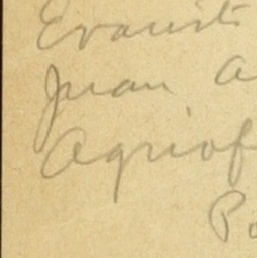 Evarist
Juan A
Agriof
Po